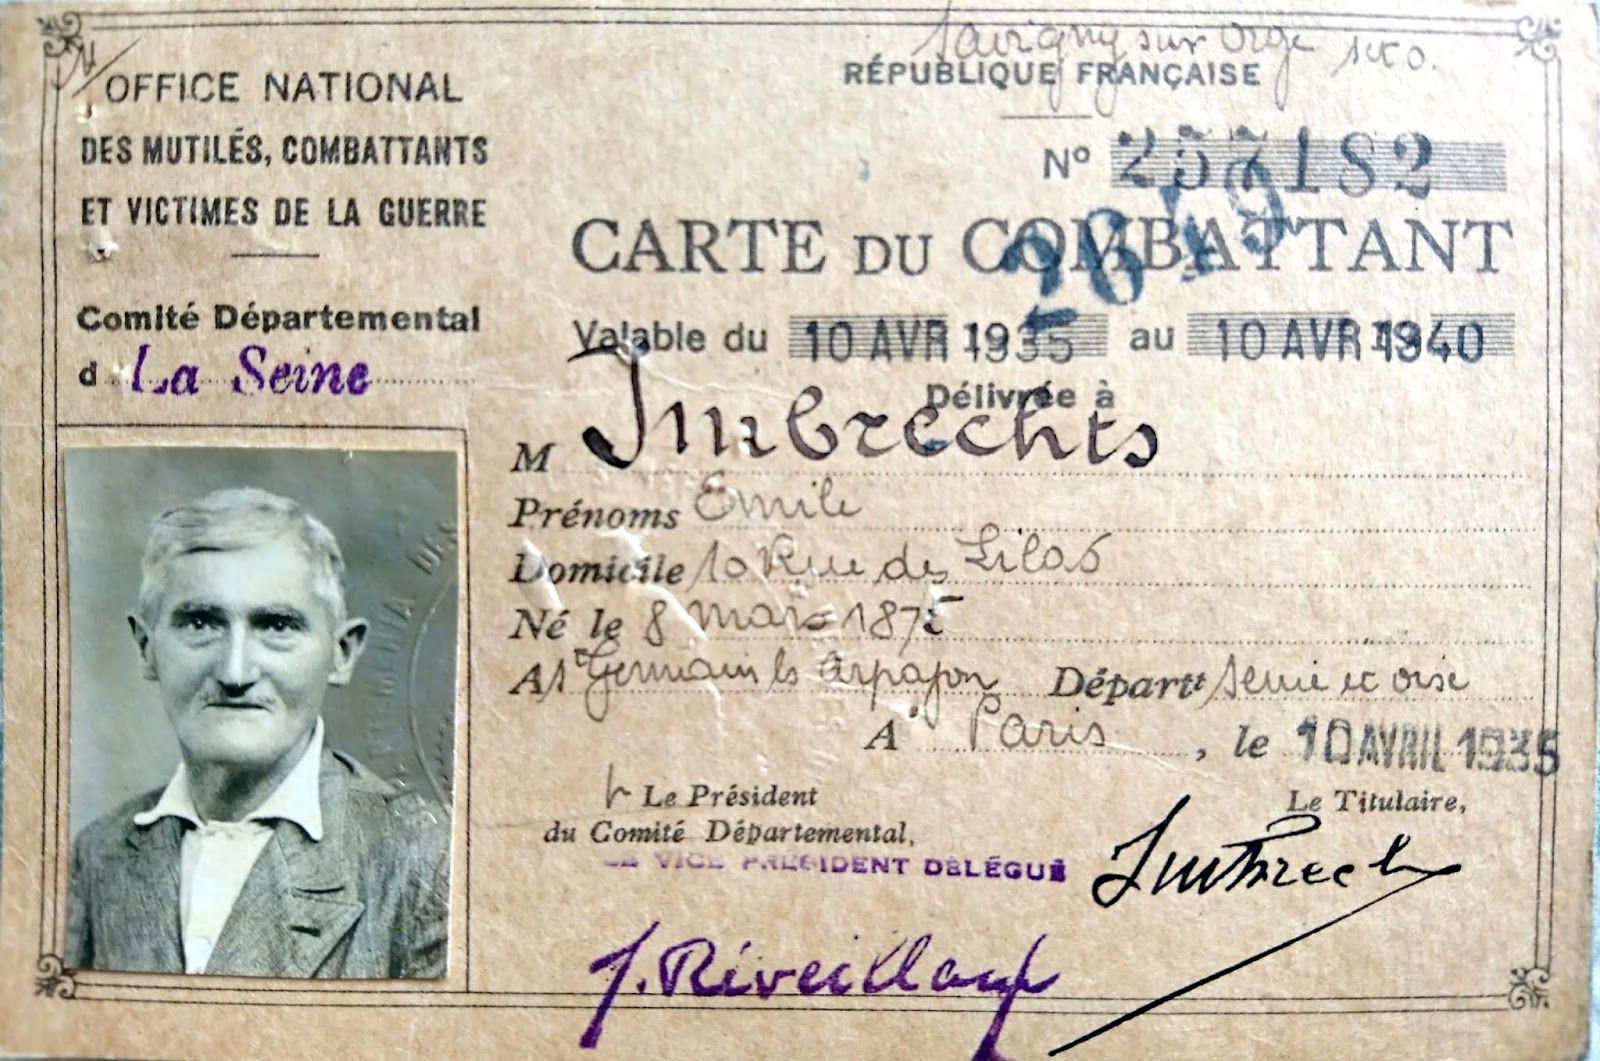 Savigny sur Orge s et o.
OFFICE NATIONAL
DES MUTILÉS, COMBATTANTS
ET VICTIMES DE LA GUERRE
Comité Départemental
d La Seine
RÉPUBLIQUE FRANÇAISE
N° 257182
26449
CARTE DU COMBATTANT
Valable du 10 AVR 1935 au 10 AVR 1940
Délivrée à
M Imbrechts
Prénoms Emile
Domicile 10 Rue des Lilas
Né le 8 Mars 1875
A St Germain les Arpajon Départt Seine et oise
A Paris, le 10 AVRIL 1935
Le Président
du Comité Départemental,
LE VICE PRÉSIDENT DÉLÉGUÉ
Le Titulaire,
Imbrecht
J. Réveillaud